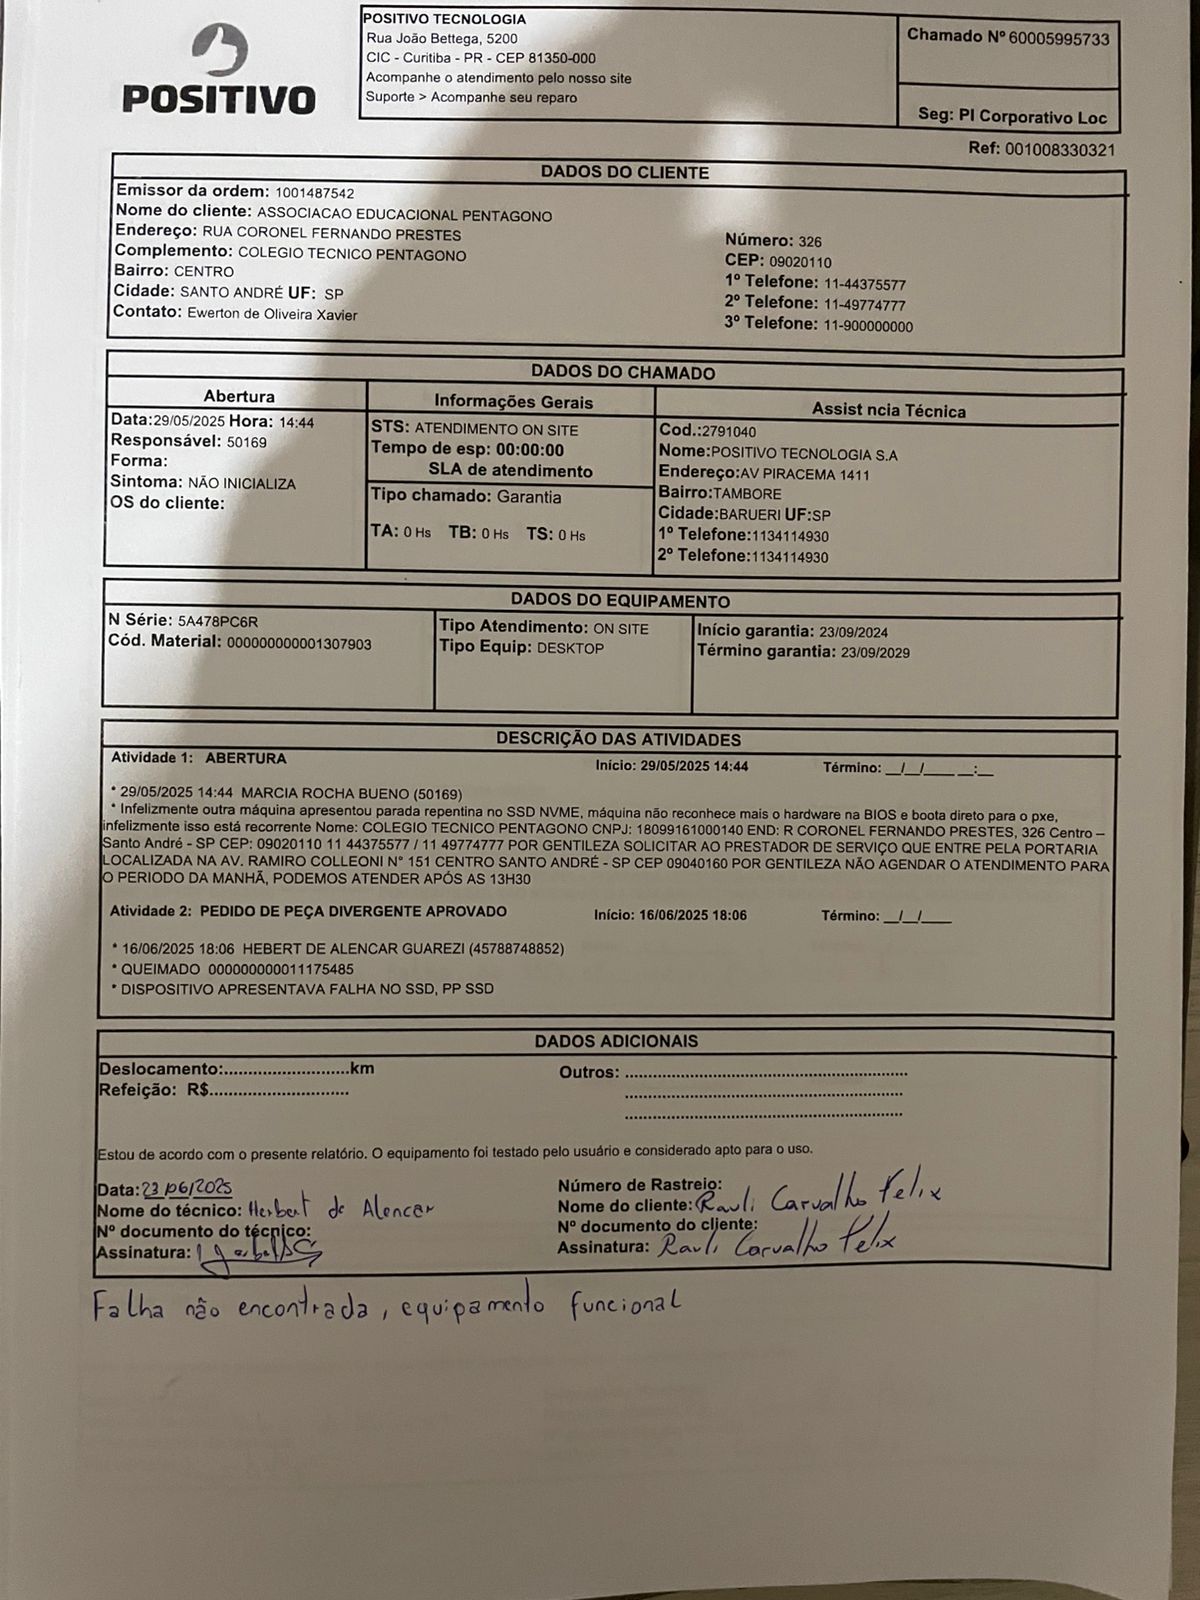 POSITIVO
POSITIVO TECNOLOGIA
Rua João Bettega, 5200
CIC - Curitiba - PR - CEP 81350-000
Acompanhe o atendimento pelo nosso site
Suporte > Acompanhe seu reparo
Chamado Nº 60005995733
Seg: PI Corporativo Loc
Ref: 001008330321
DADOS DO CLIENTE
Emissor da ordem: 1001487542
Nome do cliente: ASSOCIACAO EDUCACIONAL PENTAGONO
Endereço: RUA CORONEL FERNANDO PRESTES
Complemento: COLEGIO TECNICO PENTAGONO
Bairro: CENTRO
Cidade: SANTO ANDRÉ UF: SP
Contato: Ewerton de Oliveira Xavier
Número: 326
CEP: 09020110
1º Telefone: 11-44375577
2º Telefone: 11-49774777
3º Telefone: 11-900000000
DADOS DO CHAMADO
Abertura
Data:29/05/2025 Hora: 14:44
Responsável: 50169
Forma:
Sintoma: NÃO INICIALIZA
OS do cliente:
Informações Gerais
STS: ATENDIMENTO ON SITE
Tempo de esp: 00:00:00
SLA de atendimento
Tipo chamado: Garantia
TA: 0 Hs TB: 0 Hs TS: 0 Hs
Assist ncia Técnica
Cod.:2791040
Nome:POSITIVO TECNOLOGIA S.A
Endereço:AV PIRACEMA 1411
Bairro:TAMBORE
Cidade:BARUERI UF:SP
1º Telefone:1134114930
2º Telefone:1134114930
DADOS DO EQUIPAMENTO
N Série: 5A478PC6R
Cód. Material: 000000000001307903
Tipo Atendimento: ON SITE
Tipo Equip: DESKTOP
Início garantia: 23/09/2024
Término garantia: 23/09/2029
DESCRIÇÃO DAS ATIVIDADES
Atividade 1: ABERTURA Início: 29/05/2025 14:44 Término: __/__/____ __:__
* 29/05/2025 14:44 MARCIA ROCHA BUENO (50169)
* Infelizmente outra máquina apresentou parada repentina no SSD NVME, máquina não reconhece mais o hardware na BIOS e boota direto para o pxe,
infelizmente isso está recorrente Nome: COLEGIO TECNICO PENTAGONO CNPJ: 18099161000140 END: R CORONEL FERNANDO PRESTES, 326 Centro –
Santo André - SP CEP: 09020110 11 44375577 / 11 49774777 POR GENTILEZA SOLICITAR AO PRESTADOR DE SERVIÇO QUE ENTRE PELA PORTARIA
LOCALIZADA NA AV. RAMIRO COLLEONI N° 151 CENTRO SANTO ANDRÉ - SP CEP 09040160 POR GENTILEZA NÃO AGENDAR O ATENDIMENTO PARA
O PERIODO DA MANHÃ, PODEMOS ATENDER APÓS AS 13H30
Atividade 2: PEDIDO DE PEÇA DIVERGENTE APROVADO Início: 16/06/2025 18:06 Término: __/__/____
* 16/06/2025 18:06 HEBERT DE ALENCAR GUAREZI (45788748852)
* QUEIMADO 000000000011175485
* DISPOSITIVO APRESENTAVA FALHA NO SSD, PP SSD
DADOS ADICIONAIS
Deslocamento:..........................km
Refeição: R$.............................
Outros: ..........................................................
.........................................................
.........................................................
Estou de acordo com o presente relatório. O equipamento foi testado pelo usuário e considerado apto para o uso.
Data: 23/06/2025
Nome do técnico: Herbert de Alencar
Nº documento do técnico:
Assinatura:
Número de Rastreio:
Nome do cliente: Rauli Carvalho Felix
Nº documento do cliente:
Assinatura: Rauli Carvalho Felix
Falha não encontrada, equipamento funcional